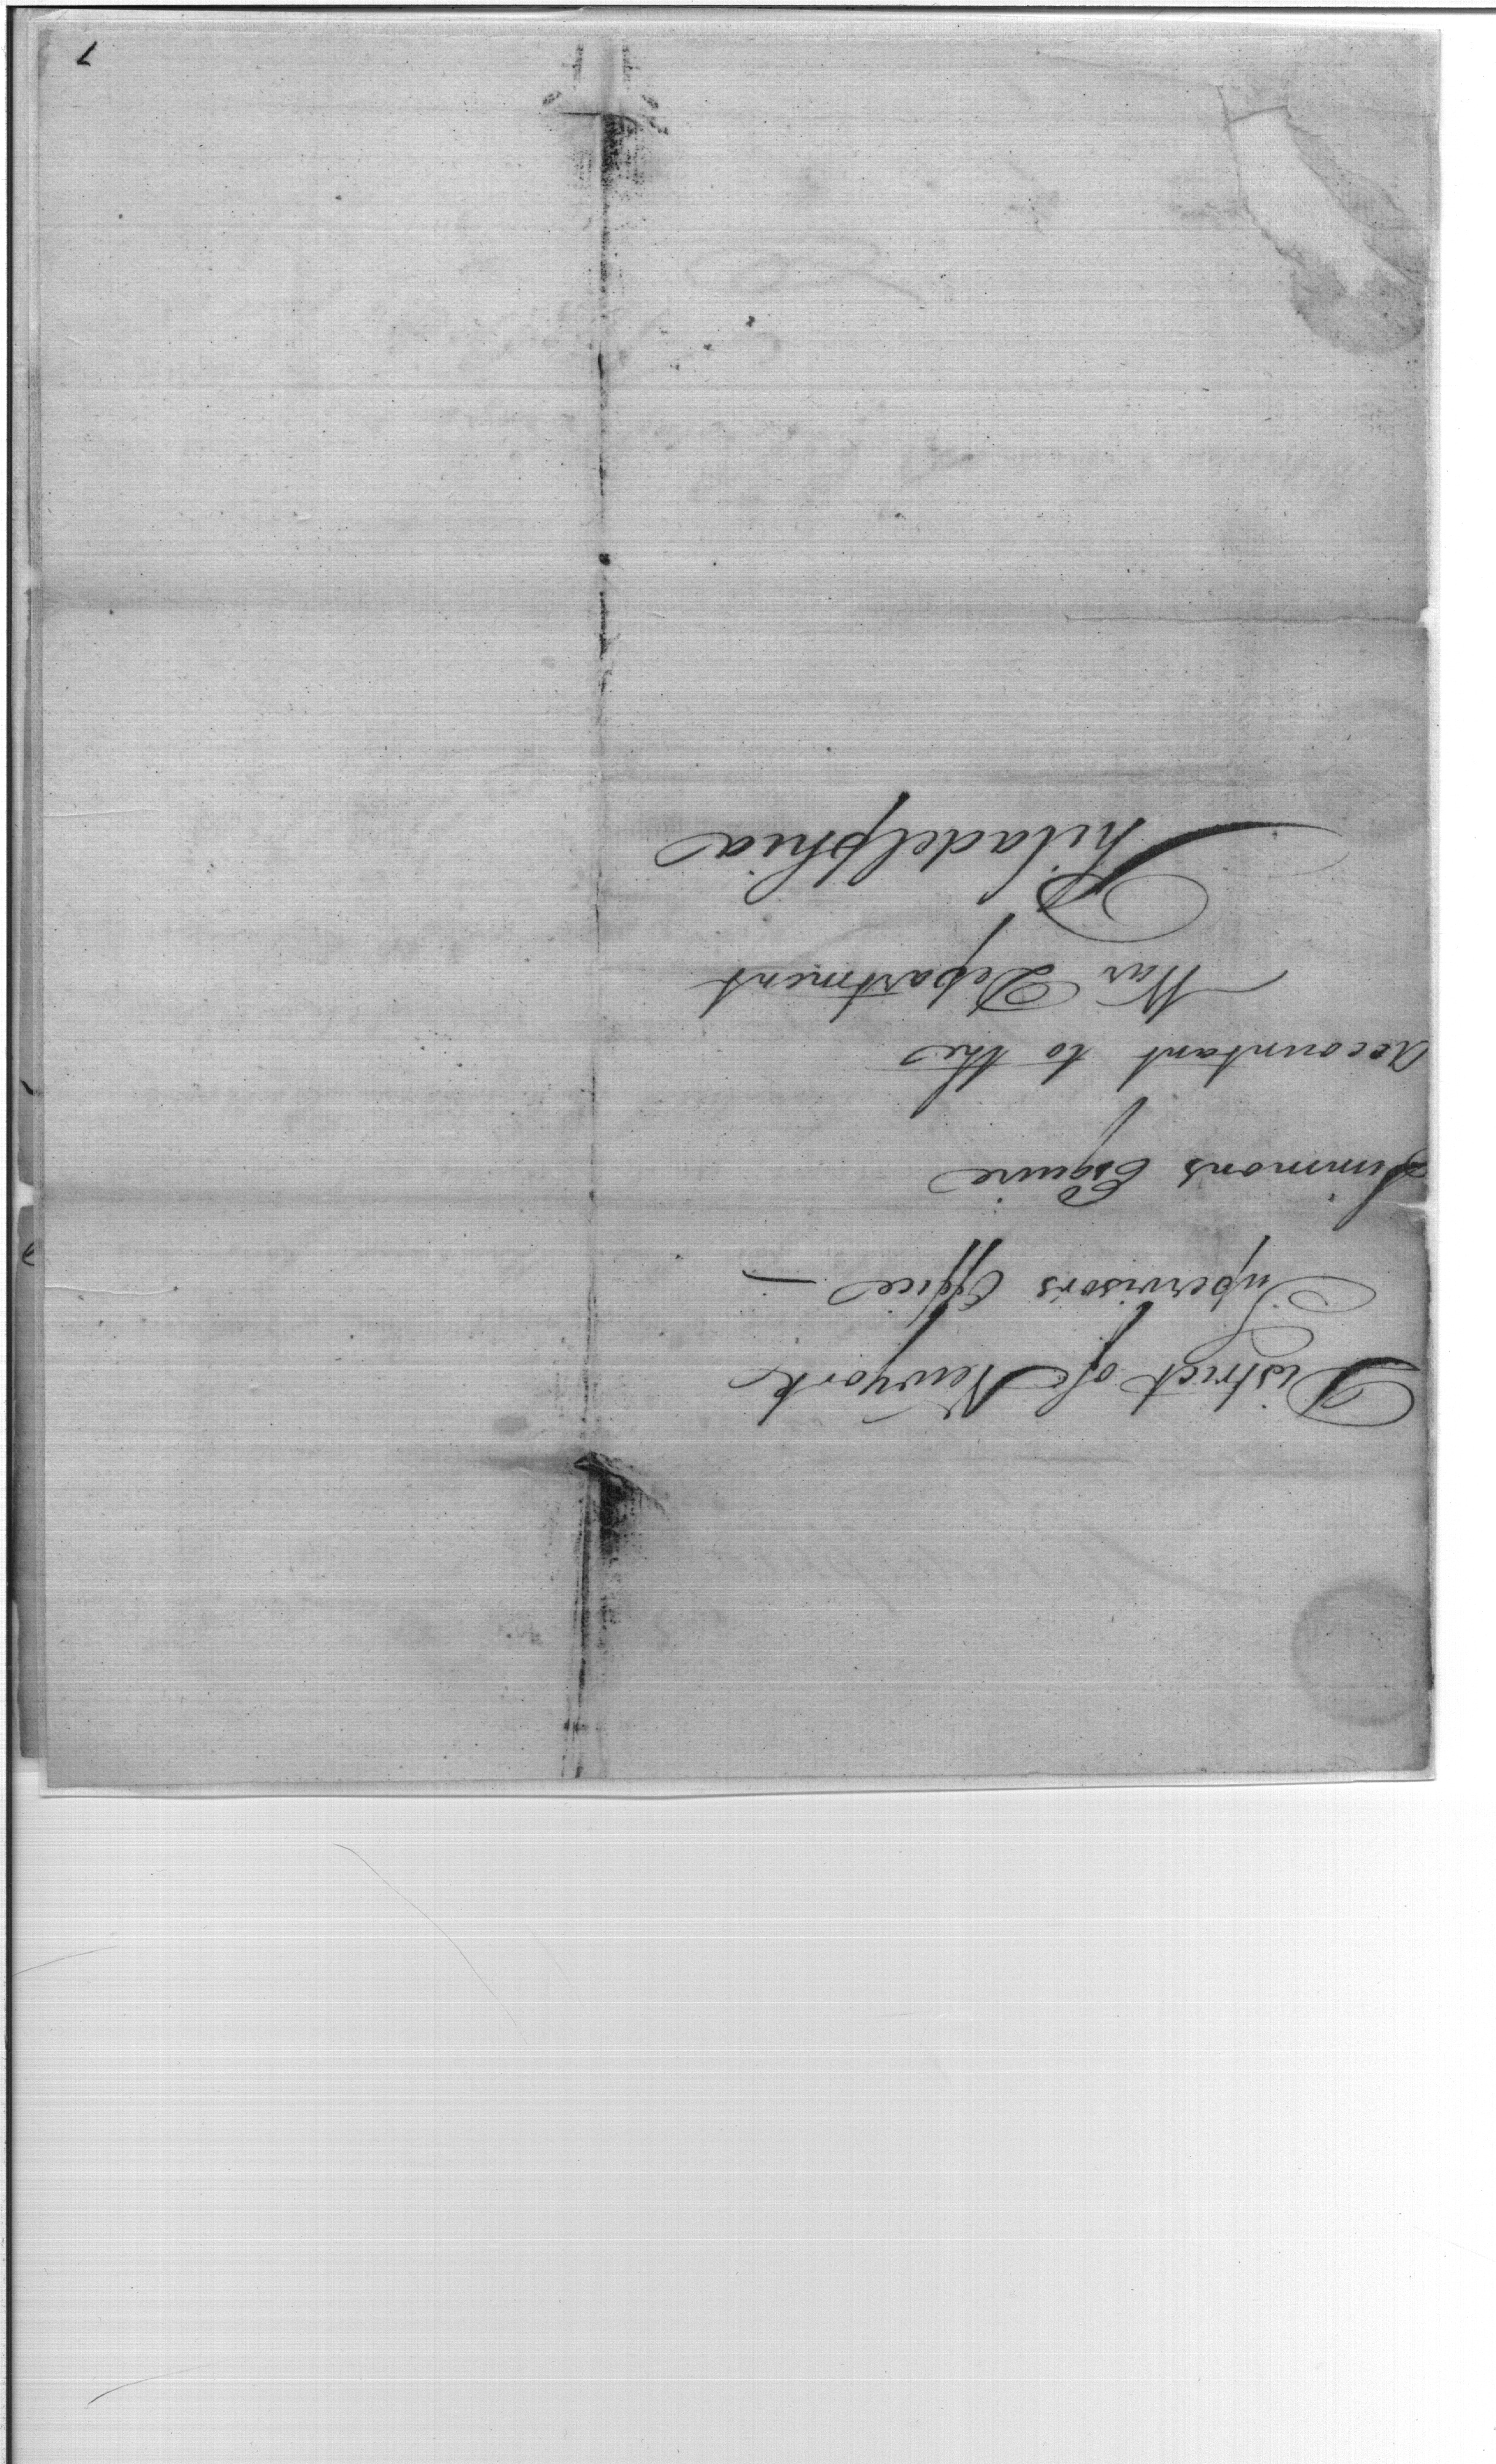 District of Newyork
Supervisors Office —
Simmons Esquire
Accountant to the
War Department
Philadelphia